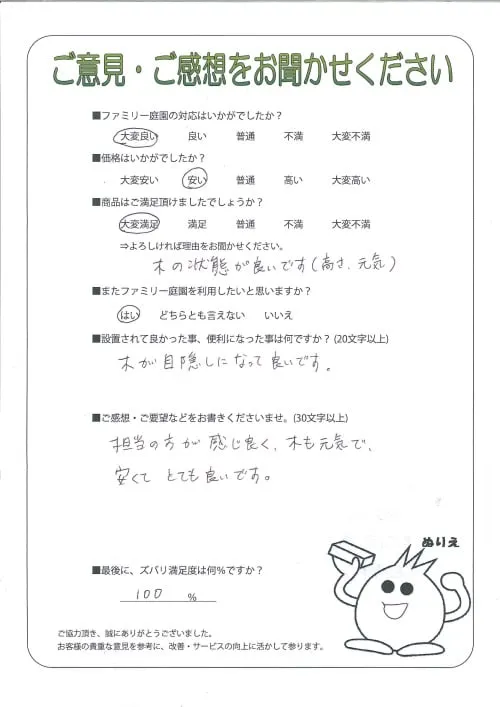 ご意見・ご感想をお聞かせください
■ファミリー庭園の対応はいかがでしたか？
大変良い 良い 普通 不満 大変不満
■価格はいかがでしたか？
大変安い 安い 普通 高い 大変高い
■商品はご満足頂けましたでしょうか？
大変満足 満足 普通 不満 大変不満
⇒よろしければ理由をお聞かせください。
木の状態が良いです(高さ、元気)
■またファミリー庭園を利用したいと思いますか？
はい どちらとも言えない いいえ
■設置されて良かった事、便利になった事は何ですか？(20文字以上)
木が目隠しになって良いです。
■ご感想・ご要望などをお書きくださいませ。(30文字以上)
担当の方が感じ良く、木も元気で、
安くてとても良いです。
ぬりえ
■最後に、ズバリ満足度は何％ですか？
100 %
ご協力頂き、誠にありがとうございました。
お客様の貴重な意見を参考に、改善・サービスの向上に活かして参ります。